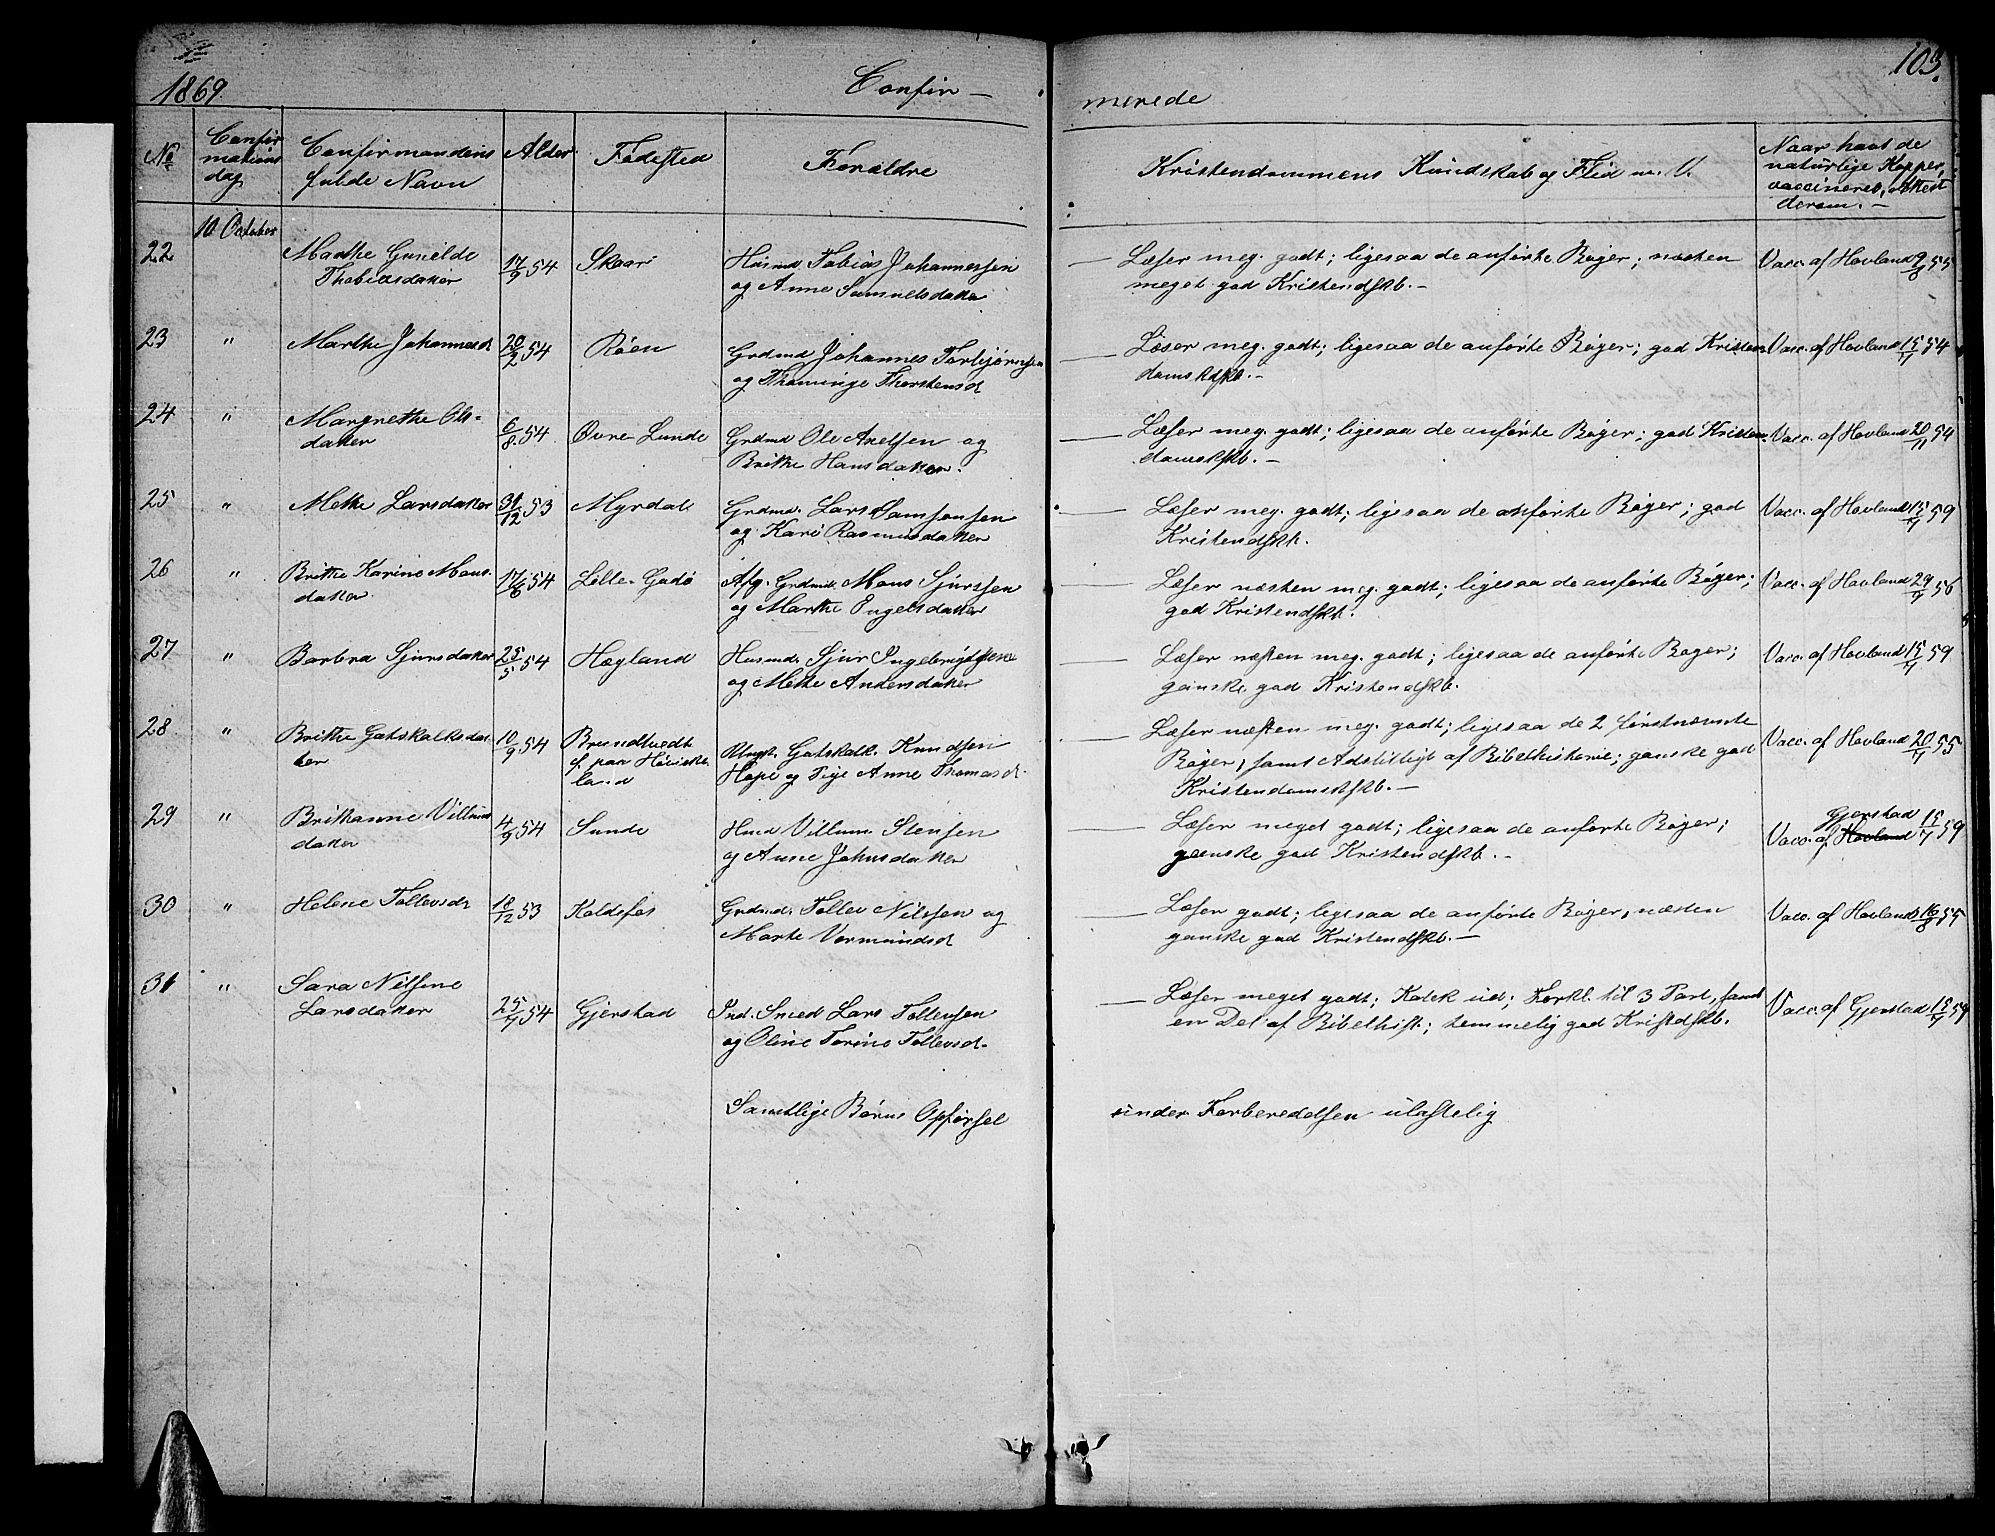 1869.
Confir-
merede
103.
No
Confir
mations
dag
Confirmandens
fulde Navn
Alder
Fødested
Forældre
Kristendommens Kundskab og Flid m. V.
Naar havt de
naturlige Kopper,
vaccineres, Attest
derom. -
10 October
22
Marthe Gunilde
Thobiasdatter
17/9 54
Skaar
Husmd Tobias Johannessen
og Anne Samuelsdatter
Læser meg. godt; ligesaa de anførte Bøger; næsten
meget god Kristendskb. -
Vacc. af Hovland 9/8 55
23
"
Marthe Johannesd
20/2 54
Røen
Grdmd Johannes Torbjørnsen
og Thominge Thorstensd
Læser meg. godt; ligesaa de anførte Bøger; god Kristen
domskskb. -
Vacc. af Hovland 15/7 54
24
"
Margrethe Ols-
datter
6/8 54
Øvre Lunde
Grdmd Ole Axelsen og
Brithe Hansdatter.
Læser meg. godt; ligesaa de anførte Bøger; god Kristen
domskskb. -
Vacc. af Hovland 20/11 54
25
"
Mette Larsdatter
31/12 53
Myrdal
Grdmd. Lars Samsonsen
og Kari Rasmusdatter
Læser meg. godt; ligesaa de anførte Bøger; god
Kristendskb.
Vacc. af Hovland 15/7 59
26
"
Brithe Karine Mons
datter
17/6 54
Lille-Gadø
Afg. Grdmd. Mons Sjurssen
og Marthe Engelsdatter
Læser næsten meg. godt; ligesaa de anførte Bøger;
god Kristendskb.
Vacc. af Hovland 29/7 56
27
"
Barbra Sjursdatter
25/5 54
Høyland
Husmd. Sjur Ingebrigtsen
og Mette Andersdatter
Læser næsten meg. godt; ligesaa de anførte Bøger;
ganske god Kristendskb.
Vacc. af Hovland 15/7 59
28
"
Brithe Gotskalksdat
ter
10/9 54
Brundtvedt
f. paa
land
Ungk. Gotskalk Knudsen
Hope og Pige Anne Thomasd.
Læser næsten meg. godt; ligesaa de 2 førstnævnte
Bøger, samt Adskilligt af Bibelhistorie; ganske god
Kristendomskskb. -
Vacc. af Hovland 20/7 55
29
"
Brithanne Villums
datter
4/9 54
Sunde
Hmd Villum Stensen
og Anne Johnsdatter
Læser meget godt; ligesaa de anførte Bøger;
ganske god Kristendskb. -
Gjerstad
Vacc. af Hovland 15/7 59
30
"
Helene Tollevsdr
18/12 53
Koldefos
Grdmd. Tollev Nilssen og
Marte Vermundsd
Læser godt; ligesaa de anførte Bøger, næsten
ganske god Kristendskb. -
Vacc. af Hovland 16/8 55
31
"
Sara Nilsine
Larsdatter
25/7 54
Gjerstad
Ind. Smed Lars Tollevsen
og Oline Torine Tollevsd.
Læser meget godt; Katek ud; Forkl. til 3 Part, samt
en Del af Bibelhist.; temmelig god Kristdskb.
Vacc. af Gjerstad 15/7 59
Samtlige Børns Opførsel
under Forberedelsen ulastelig